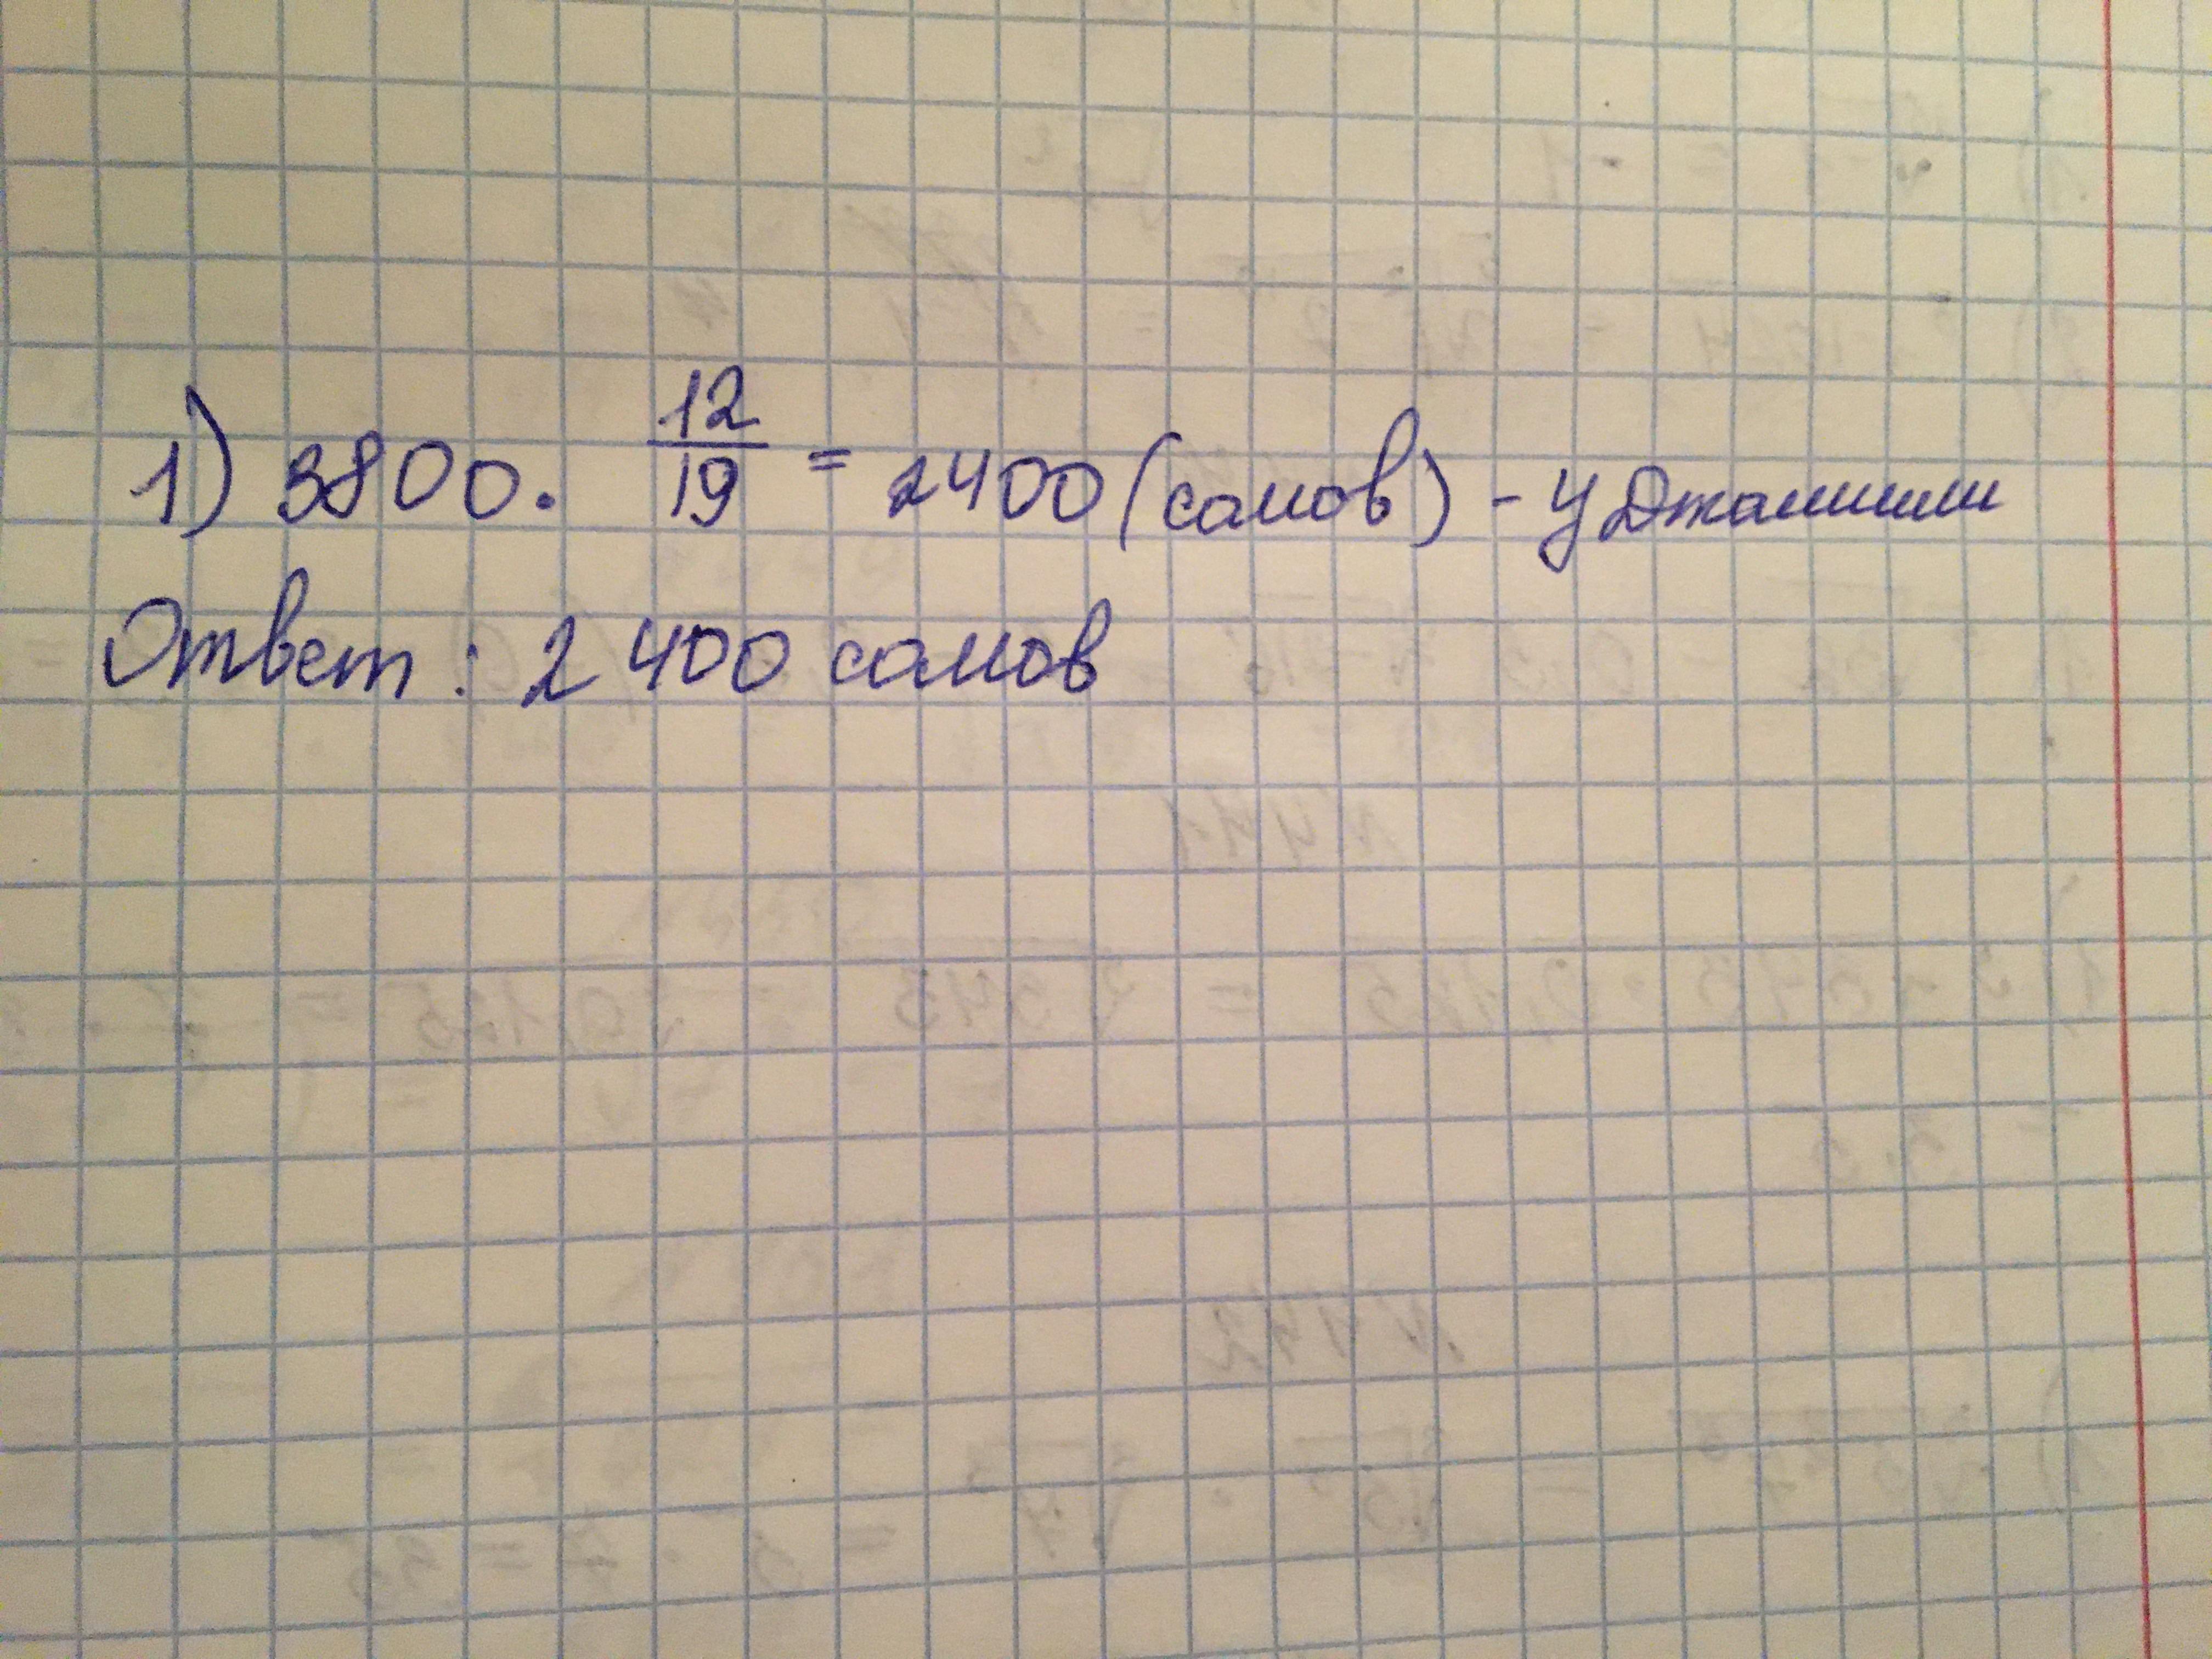 1) 3800 · 12/19 = 2400 (сомов) - У Джамили
Ответ: 2 400 сомов